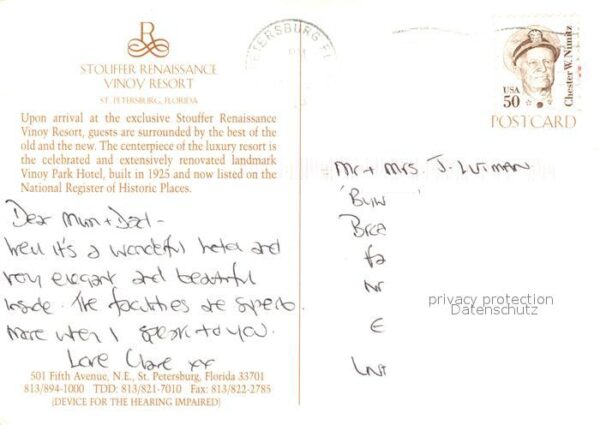 R
STOUFFER RENAISSANCE
VINOY RESORT
ST. PETERSBURG, FLORIDA
Upon arrival at the exclusive Stouffer Renaissance
Vinoy Resort, guests are surrounded by the best of the
old and the new. The centerpiece of the luxury resort is
the celebrated and extensively renovated landmark
Vinoy Park Hotel, built in 1925 and now listed on the
National Register of Historic Places.
Dear Mum + Dad -
Well it's a wonderful hotel and
very elegant and beautiful
inside. The facilities are superb.
more when I speak to you.
Love Clare xx
501 Fifth Avenue, N.E., St. Petersburg, Florida 33701
813/894-1000 TDD: 813/821-7010 Fax: 813/822-2785
(DEVICE FOR THE HEARING IMPAIRED)
PETERSBURG FL
USA
50
Chester W. Nimitz
POSTCARD
Mr + Mrs. J. LUTMAN
privacy protection
Datenschutz